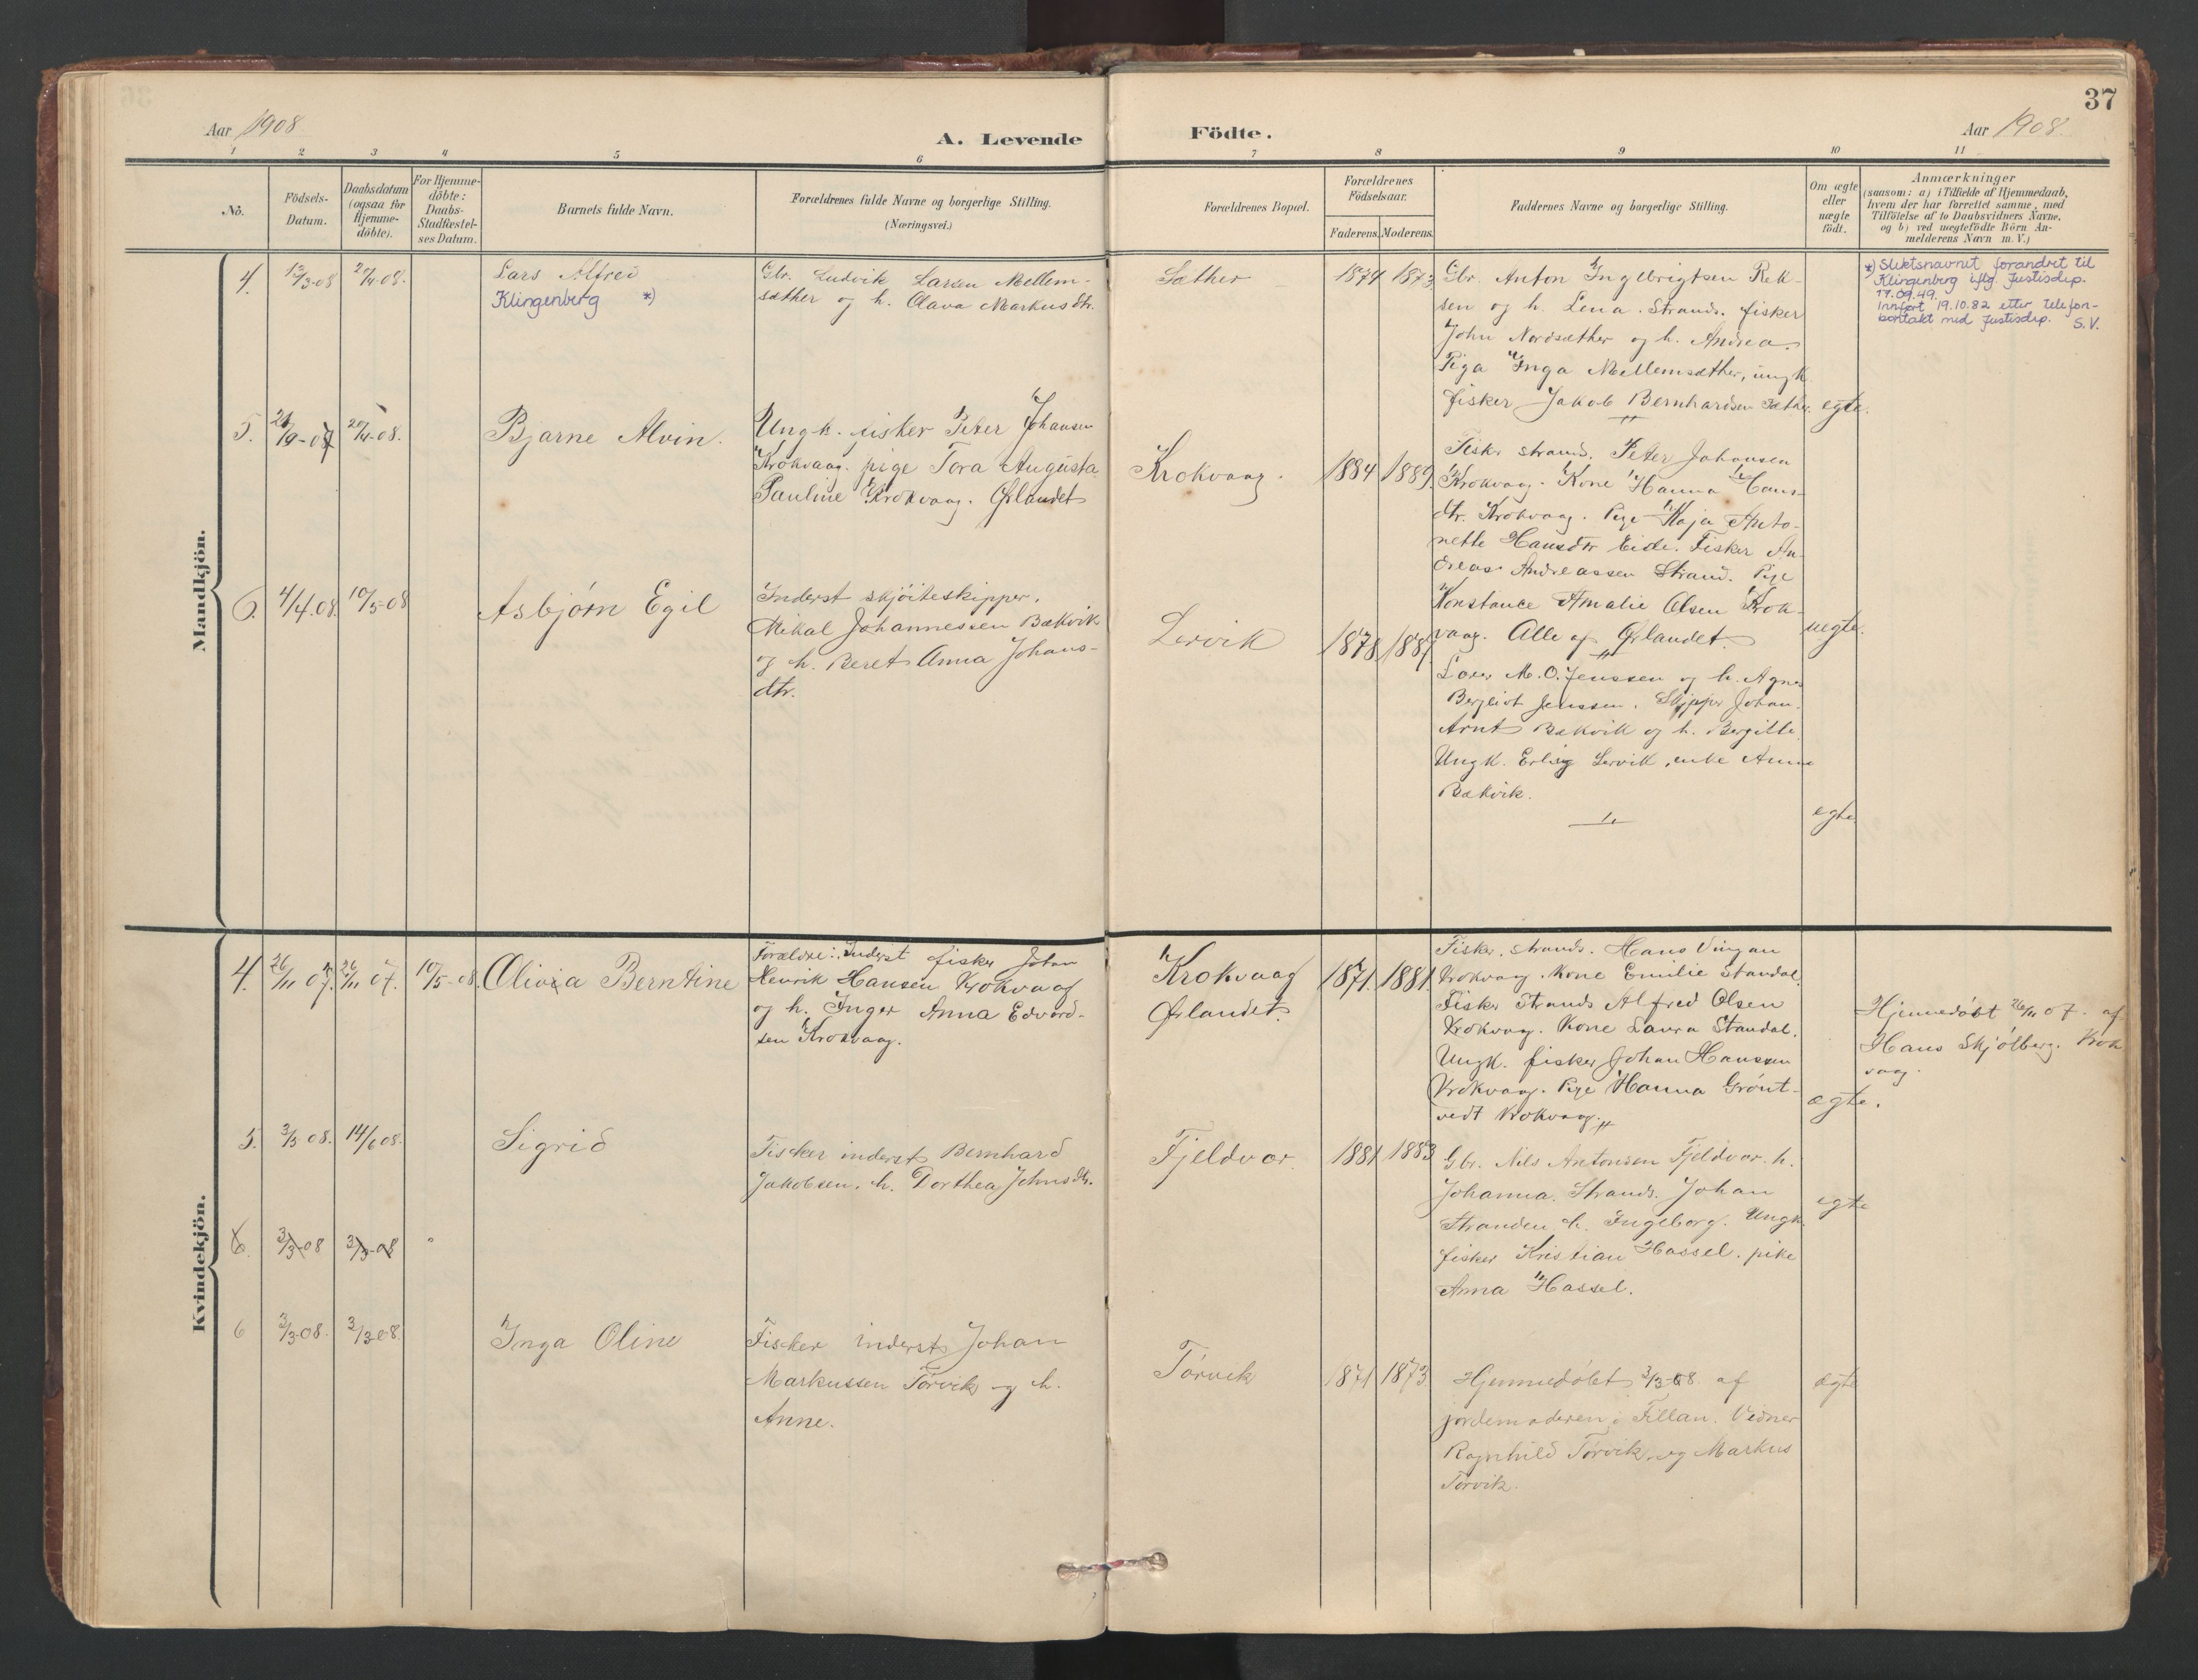 37
Aar 1908
A. Levende Födte.
Aar 1908.
1 2 3 4 5 6 7 8 9 10 11
No.
Födsels-
Datum.
Daabsdatum
(ogsaa for
Hjemme-
döbte).
For Hjemme-
döbte:
Daabs-
Stadfæstel-
ses Datum.
Barnets fulde Navn.
Forældrenes fulde Navne og borgerlige Stilling.
(Næringsvei.)
Forældrenes Bopæl.
Forældrenes
Födselsaar.
Faderens. Moderens.
Faddernes Navne og borgerlige Stilling.
Om ægte
eller
uægte
födt.
Anmærkninger
(saasom: a) i Tilfælde af Hjemmedaab,
hvem der har forrettet samme, med
Tilföielse af to Daabsvidners Navne.
og b) ved uægtefödte Börn An-
melderens Navn m. V.)
Mandkjön.
4. 13/3-08 20/4-08.
Lars Alfred
Klingenberg *)
Gbr. Ludvik Larsen Mellem-
sæther og h. Olava Markusdtr.
Sæther
1874 1873
Gbr. Anton Ingebrigtsen Rek-
sen og h. Lena. Strands. fisker
John Nordsæther og h. Andrea.
Pige Inga Mellemsæther, ungk.
fisker Jakob Bernhardsen Sæther.
egte.
*) Slektsnavnet forandret til
Klingenberg iflg. Justisdep.
17.09.49.
Innført 19.10.82 etter telefon-
kontakt med Justisdep. S.V.
5. /9-07 20/4-08.
Bjarne Alvin.
Ungk. fisker Peter Johansen
Krokvaag. pige Tora Augusta
Pauline Krokvaag. Ørlandet
Krokvaag.
1884 1889.
Fisker strands. Peter Johansen
Krokvaag. Kone Hanna Hans-
dtr. Krokvaag. Pige Kaja Anto-
nette Hansdtr Eide. Fisker An-
dreas Andreassen Strand. Pige
Konstance Amalie Olsen Krok-
vaag. Alle af Ørlandet.
uegte.
6. 4/4.08. 10/5-08
Asbjørn Egil
Inderst skjøiteskipper.
Mikal Johannessen Bækvik
og h. Beret Anna Johans-
dtr.
Lervik
1878
M. O. Jenssen og h. Agnes
Bergliot Jenssen. Skipper Johan
Arnt Bækvik og h. Bergitte.
Ungk. Erling Lervik, enke Anna
Bækvik.
egte.
Kvindekjön.
4. 26/11 07. 26/11 07. 10/5-08.
Olivia Berntine
Forældre: Inderst fisker Johan
Henrik Hansen Krokvaag
og h. Inger Anna Edvard-
sen Krokvaag.
Krokvaag
Ørlandet.
1871. 1881.
Fisker, strands. Hans Vingan
Krokvaag. Kone Emilie Standal.
Fisker Strands Alfred Olsen
Krokvaag. Kone Laura Standal.
Ungk. fisker Johan Hanssen
Krokvaag. Pige Hanna Grönt-
vedt Krokvaag.
ægte.
Hjemmedøbt 26/11 07. af
Hans Skjølberg. Krok
vaag.
5. 3/5-08. 14/6 08.
Sigrid
Fiscker inderst Bernhard
Jakobsen. h. Dorthea Johnsdtr.
Fjeldvær.
1881 1883
Gbr. Nils Antonsen Fjeldvær. h.
Johanna. Strands. Johan
Stranden h. Ingeborg. Ungk.
fisker Kristian Hassel. pike
Anna Hassel.
egte
6. 3/3-08 3/3-08
6 3/3-08. 3/3-08.
Inga Oline
Fiscker inderst Johan
Markussen Tørvik og h.
Anne.
Tørvik
1871 1873
Hjemmedøbt 3/3-08. af
jordemoderen i Fillan. Vidner
Ragnhild Tørvik og Markus
Tørvik.
ægte